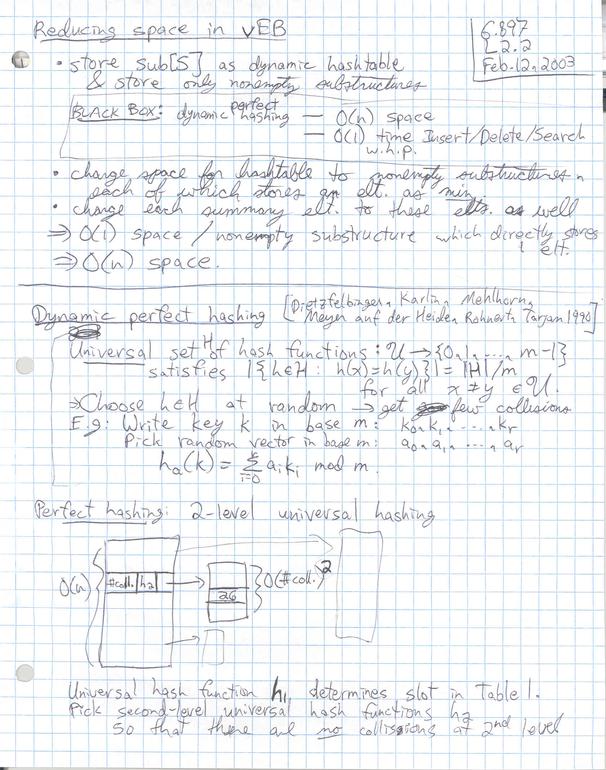 Reducing space in vEB
6.897
L2.2
Feb. 12, 2003
• store sub[S] as dynamic hashtable
& store only nonempty substructures
BLACK BOX: dynamic perfect hashing — O(n) space
— O(1) time Insert/Delete/Search
w.h.p.
• charge space for hashtable to nonempty substructures,
each of which stores an elt. as min
• charge each summary elt. to these elts. as well
⇒ O(1) space / nonempty substructure which directly stores
1 elt.
⇒ O(n) space.
Dynamic perfect hashing [Dietzfelbinger, Karlin, Mehlhorn,
Meyer auf der Heide, Rohnert, Tarjan 1990]
Universal set H of hash functions: U → {0,1,...,m-1}
satisfies |{h∈H : h(x)=h(y)}| = |H|/m
for all x ≠ y ∈ U.
⇒ Choose h∈H at random → get few collisions
E.g: Write key k in base m: k0, k1, ..., kr
Pick random vector in base m: a0, a1, ..., ar
ha(k) = Σ aiki mod m.
i=0
Perfect hashing: 2-level universal hashing
O(n) { #coll. h2 → 26 } O(#coll.)2
Universal hash function h1 determines slot in Table 1.
Pick second-level universal hash functions h2
so that there are no collisions at 2nd level